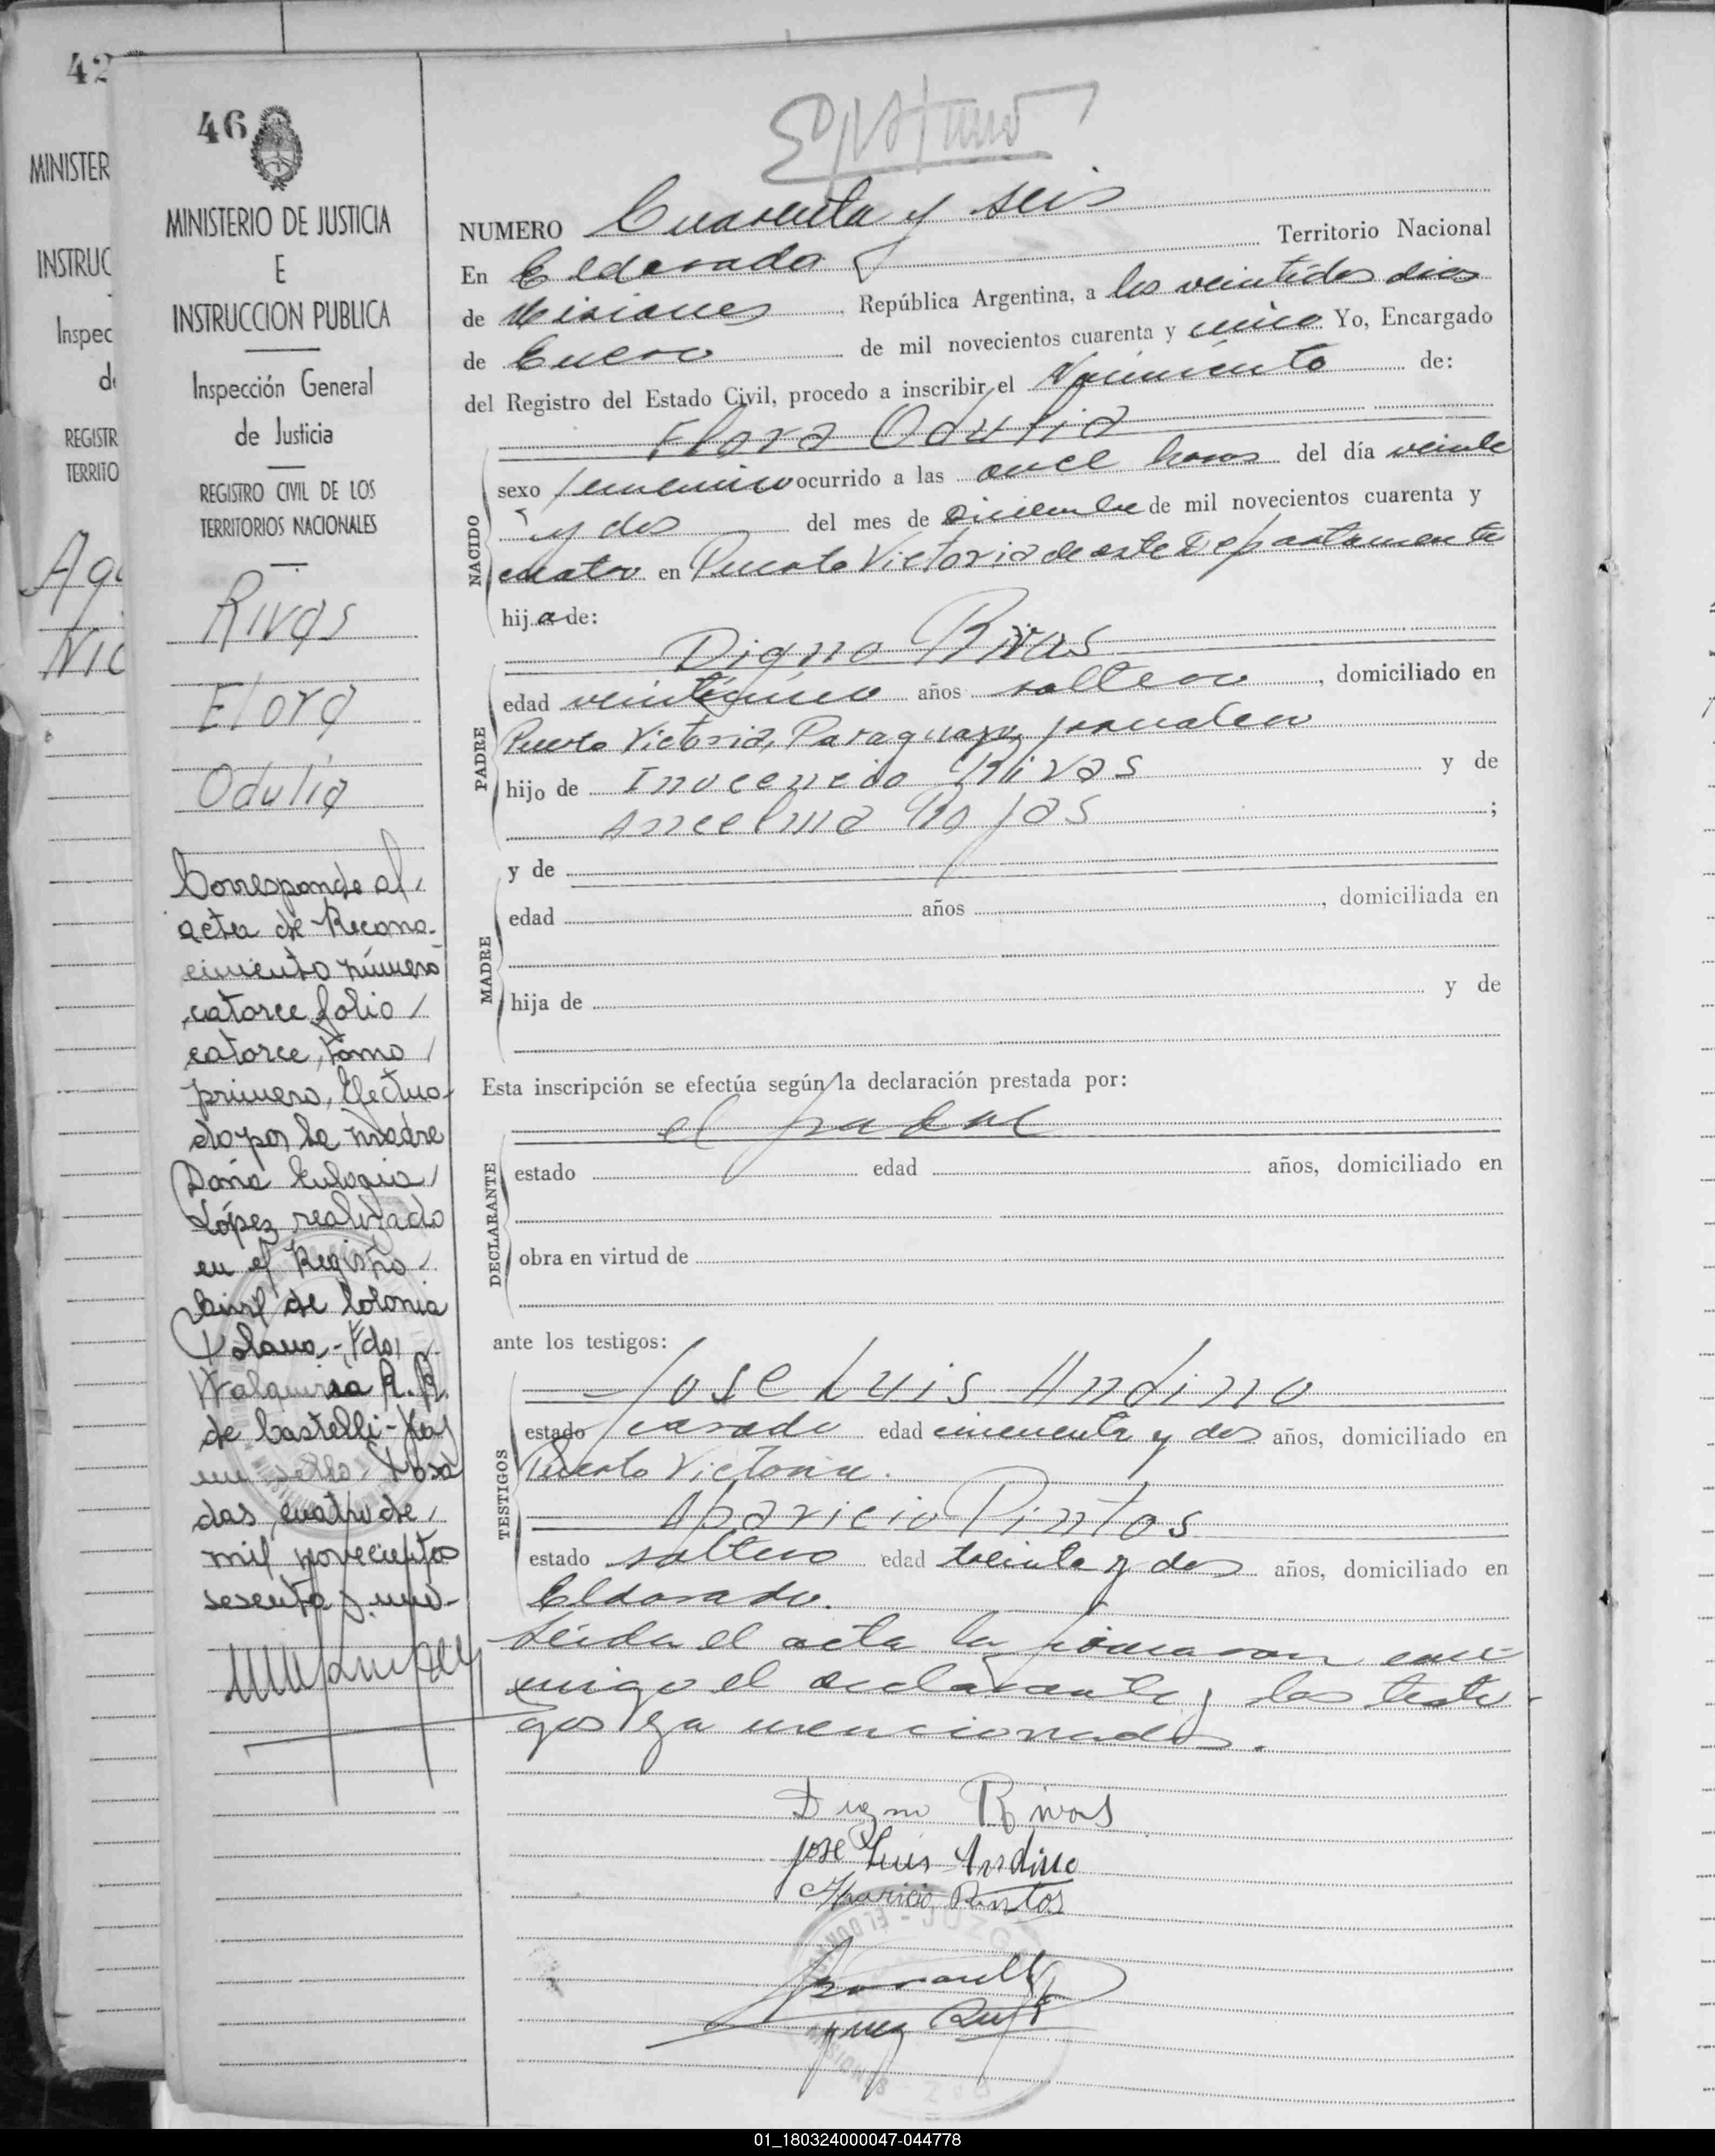 42
MINISTER
INSTRUC
Inspec
d
REGISTR
TERRITO
Nic
46
MINISTERIO DE JUSTICIA
E
INSTRUCCION PUBLICA
Inspección General
de Justicia
REGISTRO CIVIL DE LOS
TERRITORIOS NACIONALES
Rivas
Flora
Odulia
Corresponde al
acta de Recono-
cimiento número
catorce folio
catorce, tomo
primero, Efectua-
do por la madre
Doña Eulogia
López realizado
en el Registro
Civil de Colonia
Polana,- Fdo,
Walquiria R. R.
de Castelli - Hay
un sello, Posa
das, cuatro de
mil novecientos
sesenta y uno-
NUMERO Cuarenta y seis
En Eldorado Territorio Nacional
de Misiones República Argentina, a los veintidos dias
de Enero de mil novecientos cuarenta y cinco Yo, Encargado
del Registro del Estado Civil, procedo a inscribir el Nacimiento de:
Flora Odulia
NACIDO
sexo femenino ocurrido a las once horas del día veinte
y dos del mes de Diciembre de mil novecientos cuarenta y
cuatro en Puerto Victoria de este Departamento
hija de:
Digno Rivas
PADRE
edad veinticinco años soltero, domiciliado en
Puerto Victoria, Paraguayo, jornalero
hijo de Inocencio Rivas y de
Ancelma Rojas ;
y de
MADRE
edad años , domiciliada en
hija de y de
Esta inscripción se efectúa según la declaración prestada por:
el padre
DECLARANTE
estado edad años, domiciliado en
obra en virtud de
ante los testigos:
Jose Luis Andino
TESTIGOS
estado casado edad cincuenta y dos años, domiciliado en
Puerto Victoria.
Aparicio Pintos
estado soltero edad treinta y dos años, domiciliado en
Eldorado.
Leida el acta la firmaron con-
migo el declarante y los testi-
gos ya mencionados.
Digno Rivas
Jose Luis Andino
Aparicio Pintos
01_180324000047-044778